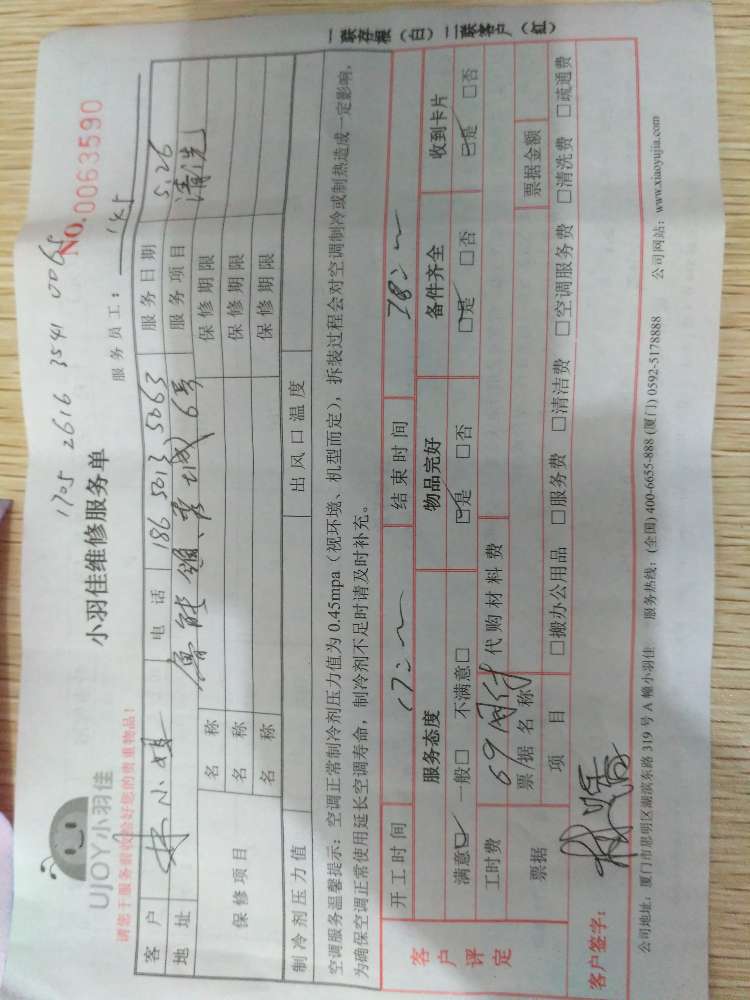 一联存根（白）二联客户（红）
1705 2616 3541 0065
NO.0063590
UJOY小羽佳
小羽佳维修服务单
服务员工：
请您于服务前收好您的贵重物品！
客户 林小姐 电话 186 5013 5063 服务日期 5.26
地址 鲁能领秀城6号 服务项目 清洗
保修项目 名称 保修期限
名称 保修期限
名称 保修期限
制冷剂压力值 出风口温度
空调服务温馨提示：空调正常制冷剂压力值为0.45mpa（视环境、机型而定），拆装过程会对空调制冷或制热造成一定影响，
为确保空调正常使用延长空调寿命，制冷剂不足时请及时补充。
客户评定
开工时间 结束时间
服务态度 物品完好 备件齐全 收到卡片
满意☑ 一般□ 不满意□ ☑是 □否 ☑是 □否 ☑是 □否
工时费 69 代购材料费
票据 票据名称 票据金额
项目 □搬办公用品 □服务费 □清洁费 □空调服务费 □清洗费 □疏通费
客户签字：
公司地址：厦门市思明区湖滨东路319号A幢小羽佳 服务热线：(全国) 400-6655-888 (厦门) 0592-5178888 公司网站：www.xiaoyujia.com